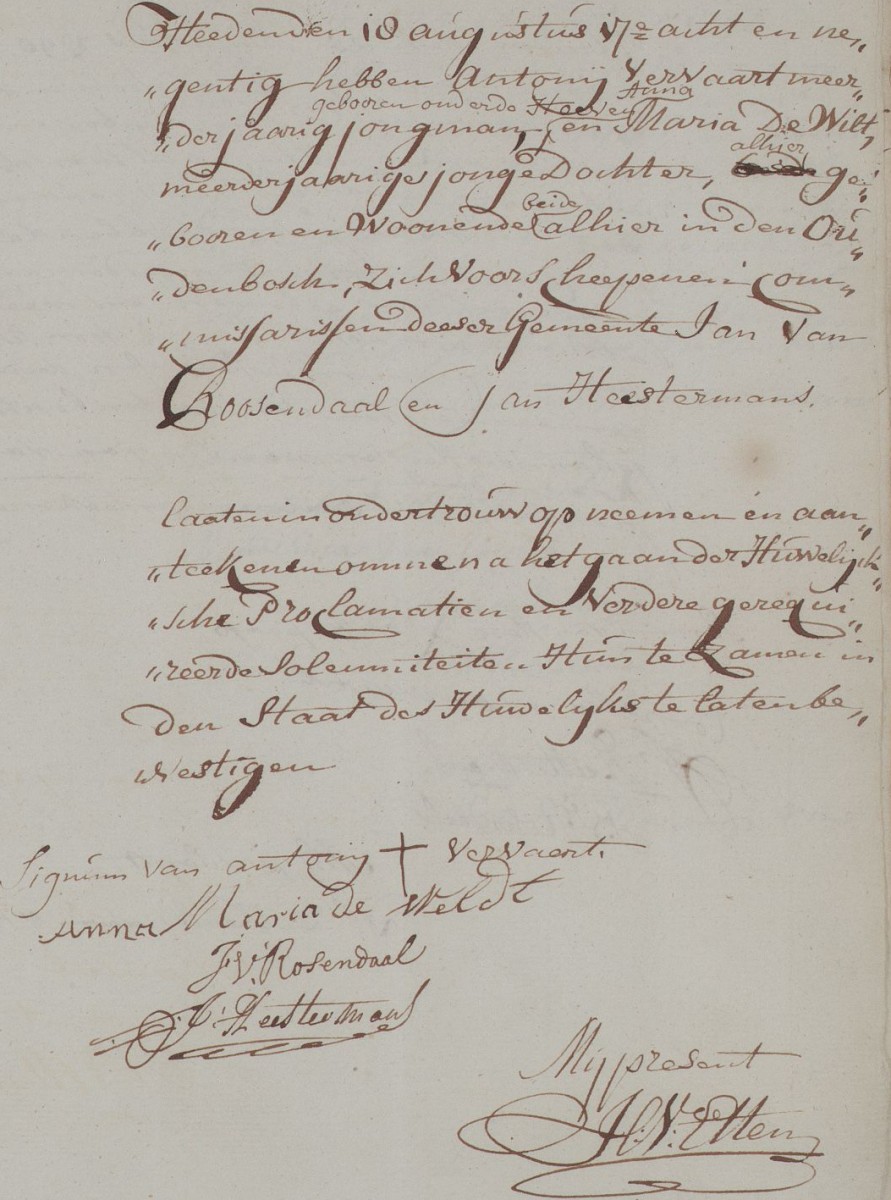 Heeden den 18 augustus 17e acht en ne„
„gentig hebben Antonij Vervaart meer„
gebooren onder de Hoeven Anna
„derjaarig jongman, en Maria De Wilt,
alhier
meerderjaarige jonge Dochter, ge„
beide
„booren en Woonende alhier in den Ou„
„denbosch, Zich Voor Scheepenen Com„
„missarissen deeser Gemeente Jan Van
Roosendaal en Jan Heestermans.
laaten in ondertrouw op neemen en aan„
„teekenen omme na het gaan der Huwelijck„
„sche Proclamatien en Verdere gerequi„
„reerde Solemniteiten Hun te Zamen in
den Staat des Huwelijks te laten be„
vestigen
Signum van antonij + Vervaert.
Anna Maria de Weldt
J V: Rosendaal
J: Heestermans
Mij present
H: V: Etten